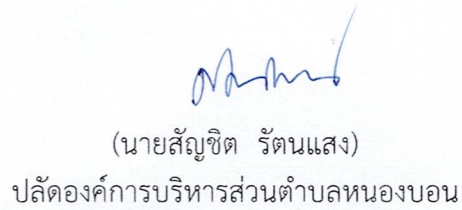 (นายสัญชิต รัตนแสง)
ปลัดองค์การบริหารส่วนตำบลหนองบอน